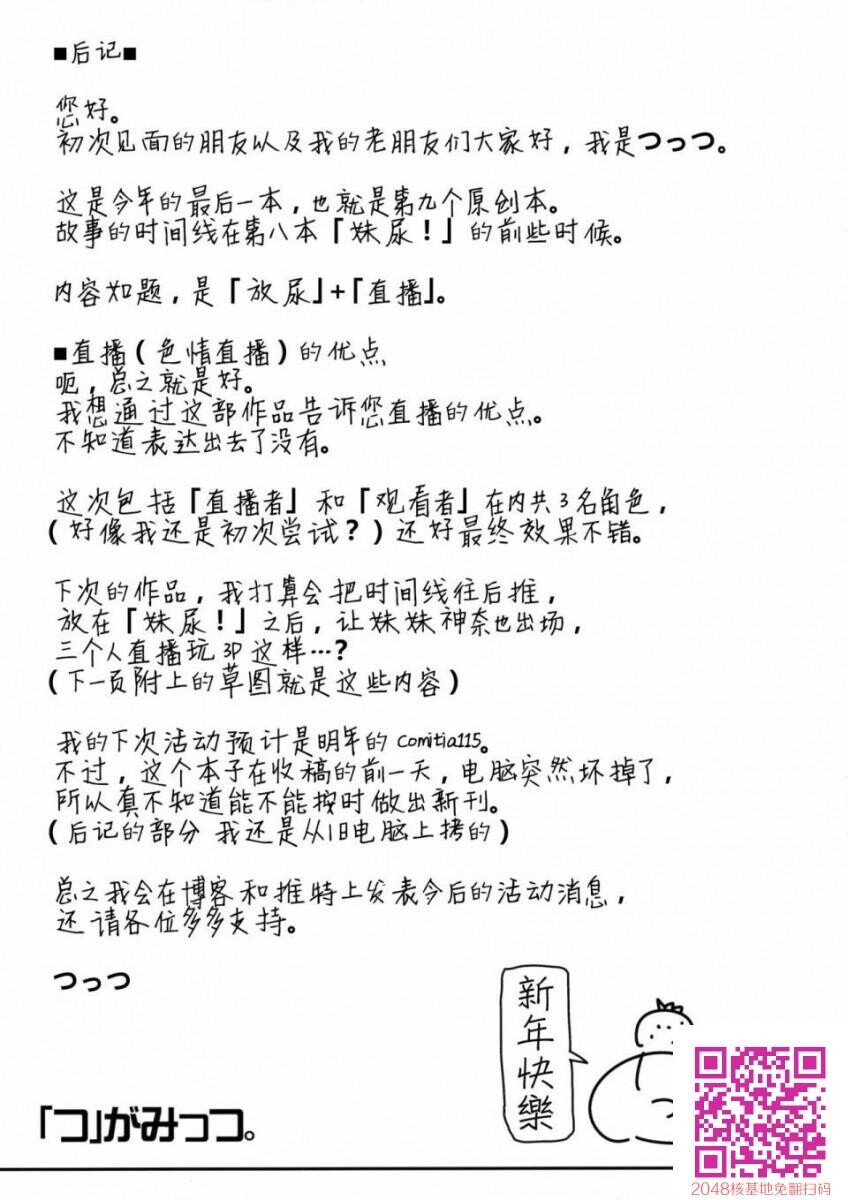 ■后记■
您好。
初次见面的朋友以及我的老朋友们大家好，我是つっつ。
这是今年的最后一本，也就是第九个原创本。
故事的时间线在第八本「妹尿！」的前些时候。
内容如题，是「放尿」+「直播」。
■直播（色情直播）的优点
呃，总之就是好。
我想通过这部作品告诉您直播的优点。
不知道表达出去了没有。
这次包括「直播者」和「观看者」在内共3名角色，
（好像我还是初次尝试？）还好最终效果不错。
下次的作品，我打算会把时间线往后推，
放在「妹尿！」之后，让妹妹神奈也出场，
三个人直播玩3P这样…？
（下一页附上的草图就是这些内容）
我的下次活动预计是明年的comitia115。
不过，这个本子在收稿的前一天，电脑突然坏掉了，
所以真不知道能不能按时做出新刊。
（后记的部分 我还是从旧电脑上拷的）
总之我会在博客和推特上发表今后的活动消息，
还请各位多多支持。
つっつ
新年快樂
「つ」がみっつ。
2048核基地免翻扫码